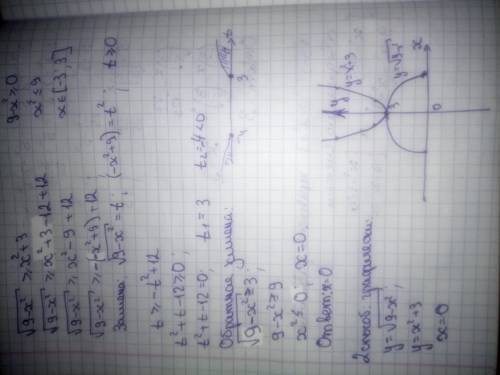 √9-x² ≥ x²+3    9-x² ≥ 0
√9-x² ≥ x²+3-12+12    x² ≤ 9
√9-x² ≥ x²-9+12    x ∈ [-3;3]
√9-x² ≥ -(-x²+9)+12
Замена: √9-x² = t; (-x²+9) = t²    t ≥ 0
t ≥ -t²+12
t²+t-12 ≥ 0;
t²+t-12=0;    t₁ = 3    t₂ = -4 < 0
Обратная замена:
-4    3    t
√9-x² ≥ 3;
9-x² ≥ 9
x² ≤ 0;    x=0.
Ответ: x=0
2 способ. графически:
y=√9-x²;
y=x²+3
x=0
y
y=x²+3
3
y=√9-x²
0
x